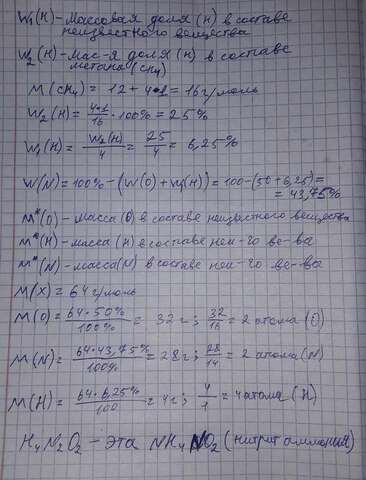 W₁(H) - Массовая доля (H) в составе
неизвестного вещества
W₂(H) - Мас-я доля (H) в составе
метана (CH₄)
M(CH₄) = 12 + 4·1 = 16 г/моль
W₂(H) = 4·1/16 · 100% = 25%
W₁(H) = W₂(H)/4 = 25/4 = 6,25%
W(N) = 100% - (W(O) + W₁(H)) = 100 - (50 + 6,25) =
= 43,75%
m*(O) - масса (O) в составе неизвестного вещества
m*(H) - масса (H) в составе неи-го ве-ва
m*(N) - масса (N) в составе неи-го ве-ва
M(X) = 64 г/моль
M(O) = 64·50%/100% = 32 г; 32/16 = 2 атома (O)
M(N) = 64·43,75%/100% = 28 г; 28/14 = 2 атома (N)
M(H) = 64·6,25%/100 = 4 г; 4/1 = 4 атома (H)
H₄N₂O₂ - эта NH₄NO₂ (нитрит аммония)